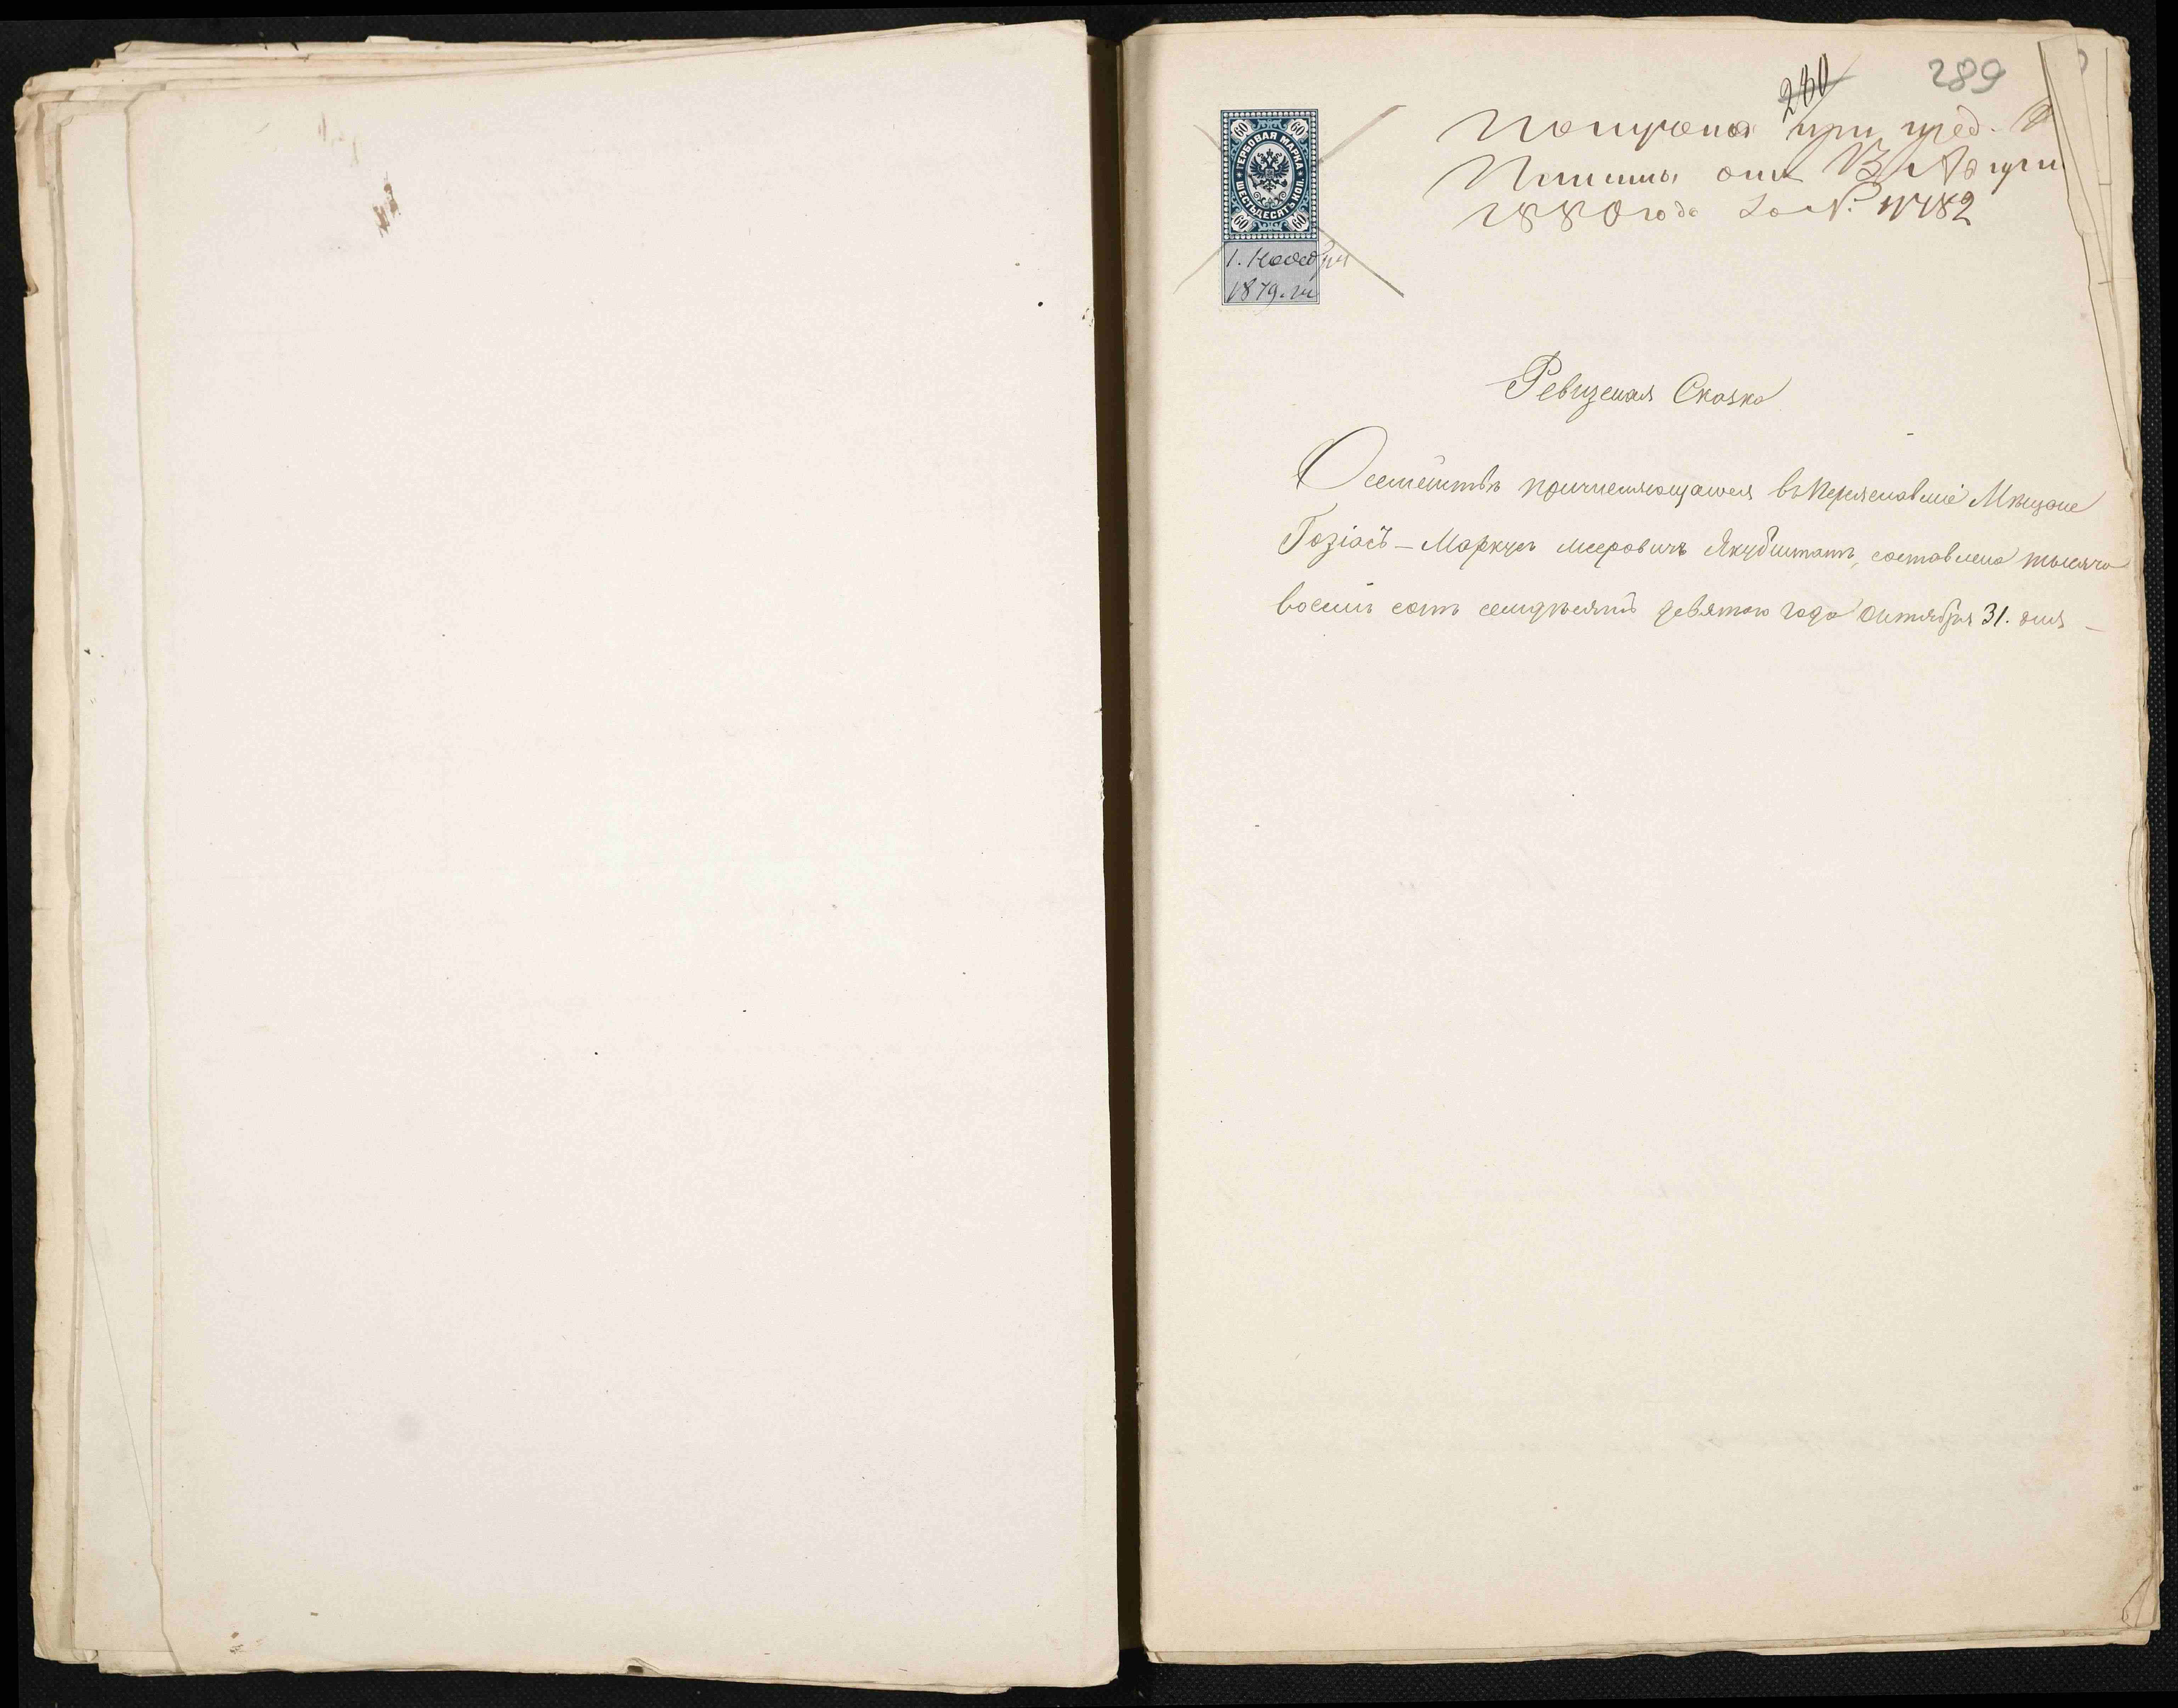 260
289
Получена при пред. К
Палаты отъ 13 Апрѣ
1880 года за №
60 60
ГЕРБОВАЯ МАРКА
ШЕСТЬДЕСЯТЪ КОП.
60 60
1. Ноября
1879. г.
Ревизская Сказка
О семействѣ причисляющагося въ Переяславліе Мѣщане
Гозіасъ — Маркусъ Мееровичъ Якубштатъ, составлена тысяча
восемь сотъ семдѣсятъ девятого года Октября 31. дня —